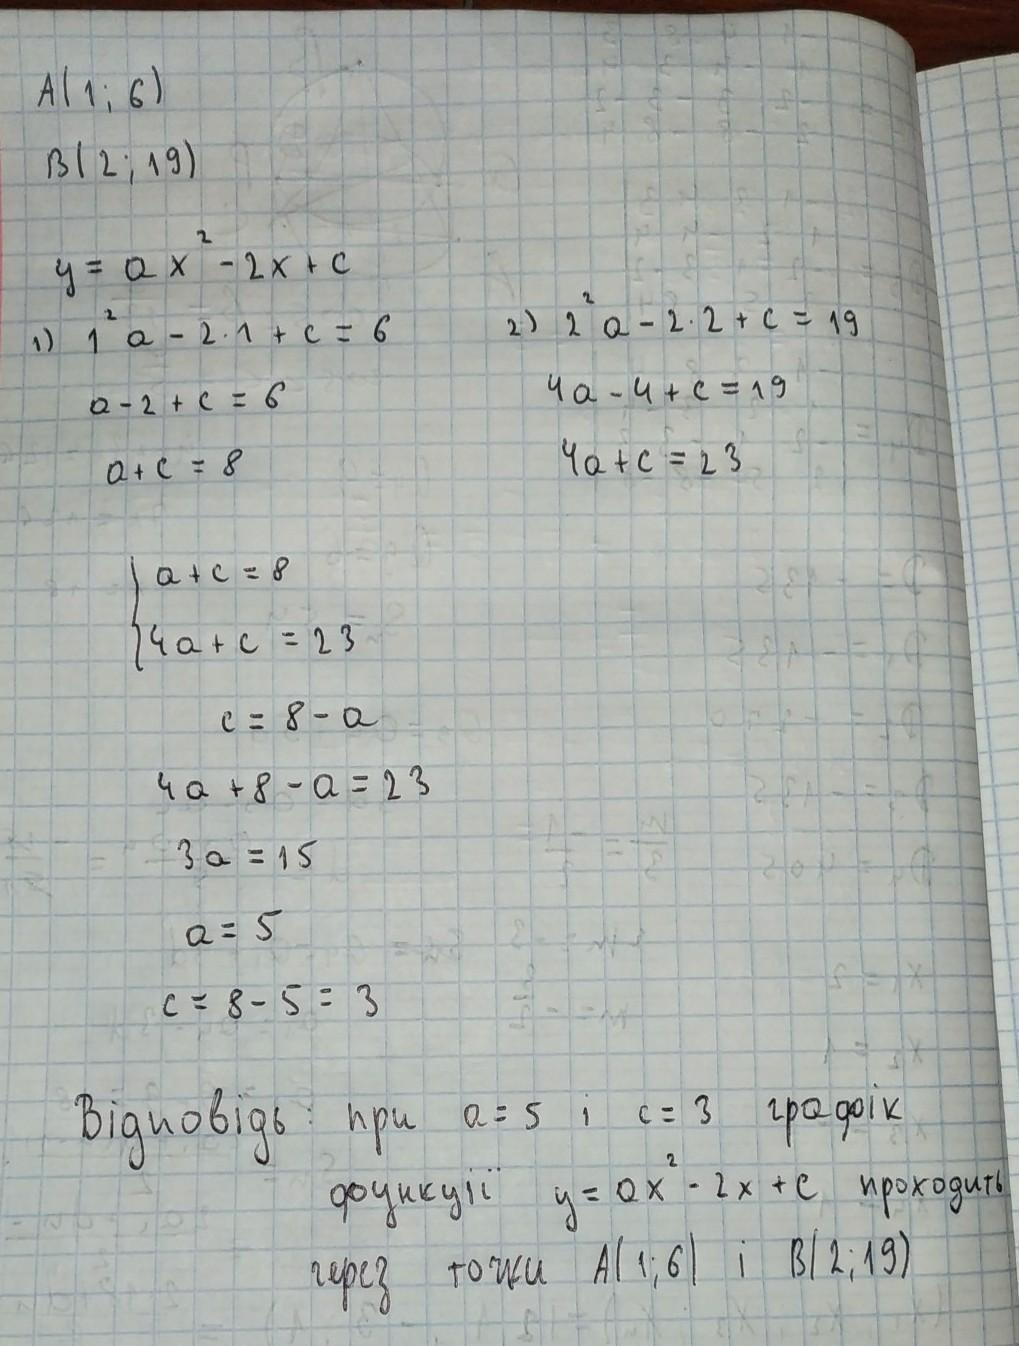 A(1; 6)
B(2; 19)
y = ax² - 2x + c
1) 1²a - 2·1 + c = 6
2) 2²a - 2·2 + c = 19
a - 2 + c = 6
4a - 4 + c = 19
a + c = 8
4a + c = 23
{ a + c = 8
4a + c = 23
c = 8 - a
4a + 8 - a = 23
3a = 15
a = 5
c = 8 - 5 = 3
Відповідь: при a = 5 і c = 3 графік
функції y = ax² - 2x + c проходить
через точки A(1; 6) і B(2; 19)